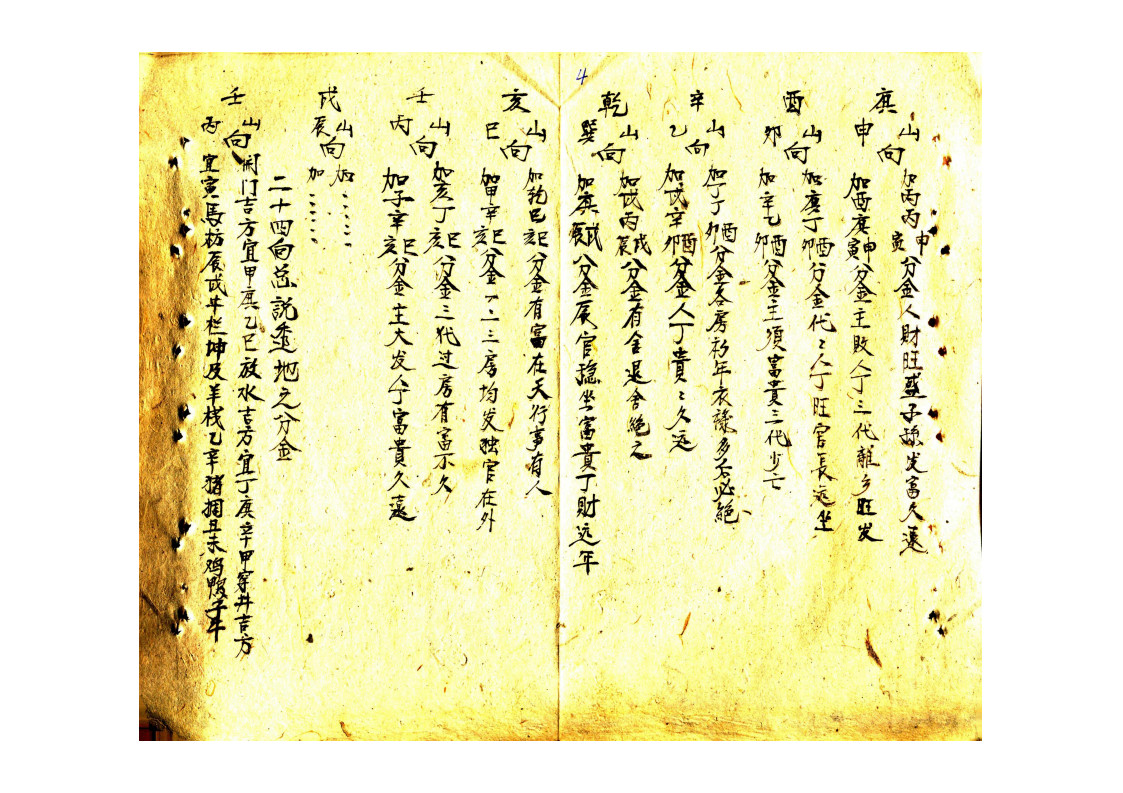 4
庚山
申向
加丙丙申寅分金人財旺盛子孫发富久遠
加酉庚申寅分金主敗人丁三代離乡旺发
酉山
卯向
加庚丁酉卯分金代〻人丁旺官長远坐
加辛乙酉卯分金主須富貴三代少亡
辛山
乙向
加丁丁酉卯分金各房初年衣祿多不必絕
加戌辛酉卯分金人丁貴〻久远
乾山
巽向
加戌丙戌辰分金有舍退舍絕之
加庚戌辰分金辰官穏坐富貴丁財远年
亥山
巳向
加乾巳巳亥分金有富在天行事有人
加甲辛巳亥分金一二三房均发独官在外
壬山
丙向
加亥丁巳亥分金三代过房有富不久
加子辛巳亥分金主大发人丁富貴久遠
戌山
辰向
加
加
二十四向总説透地之分金
壬山
丙向
開门吉方宜甲庚乙巳放水吉方宜丁庚辛甲穿井吉方
宜寅馬枋辰戌牛栏坤及羊栈乙辛猪捆丑未鸡鴨子午